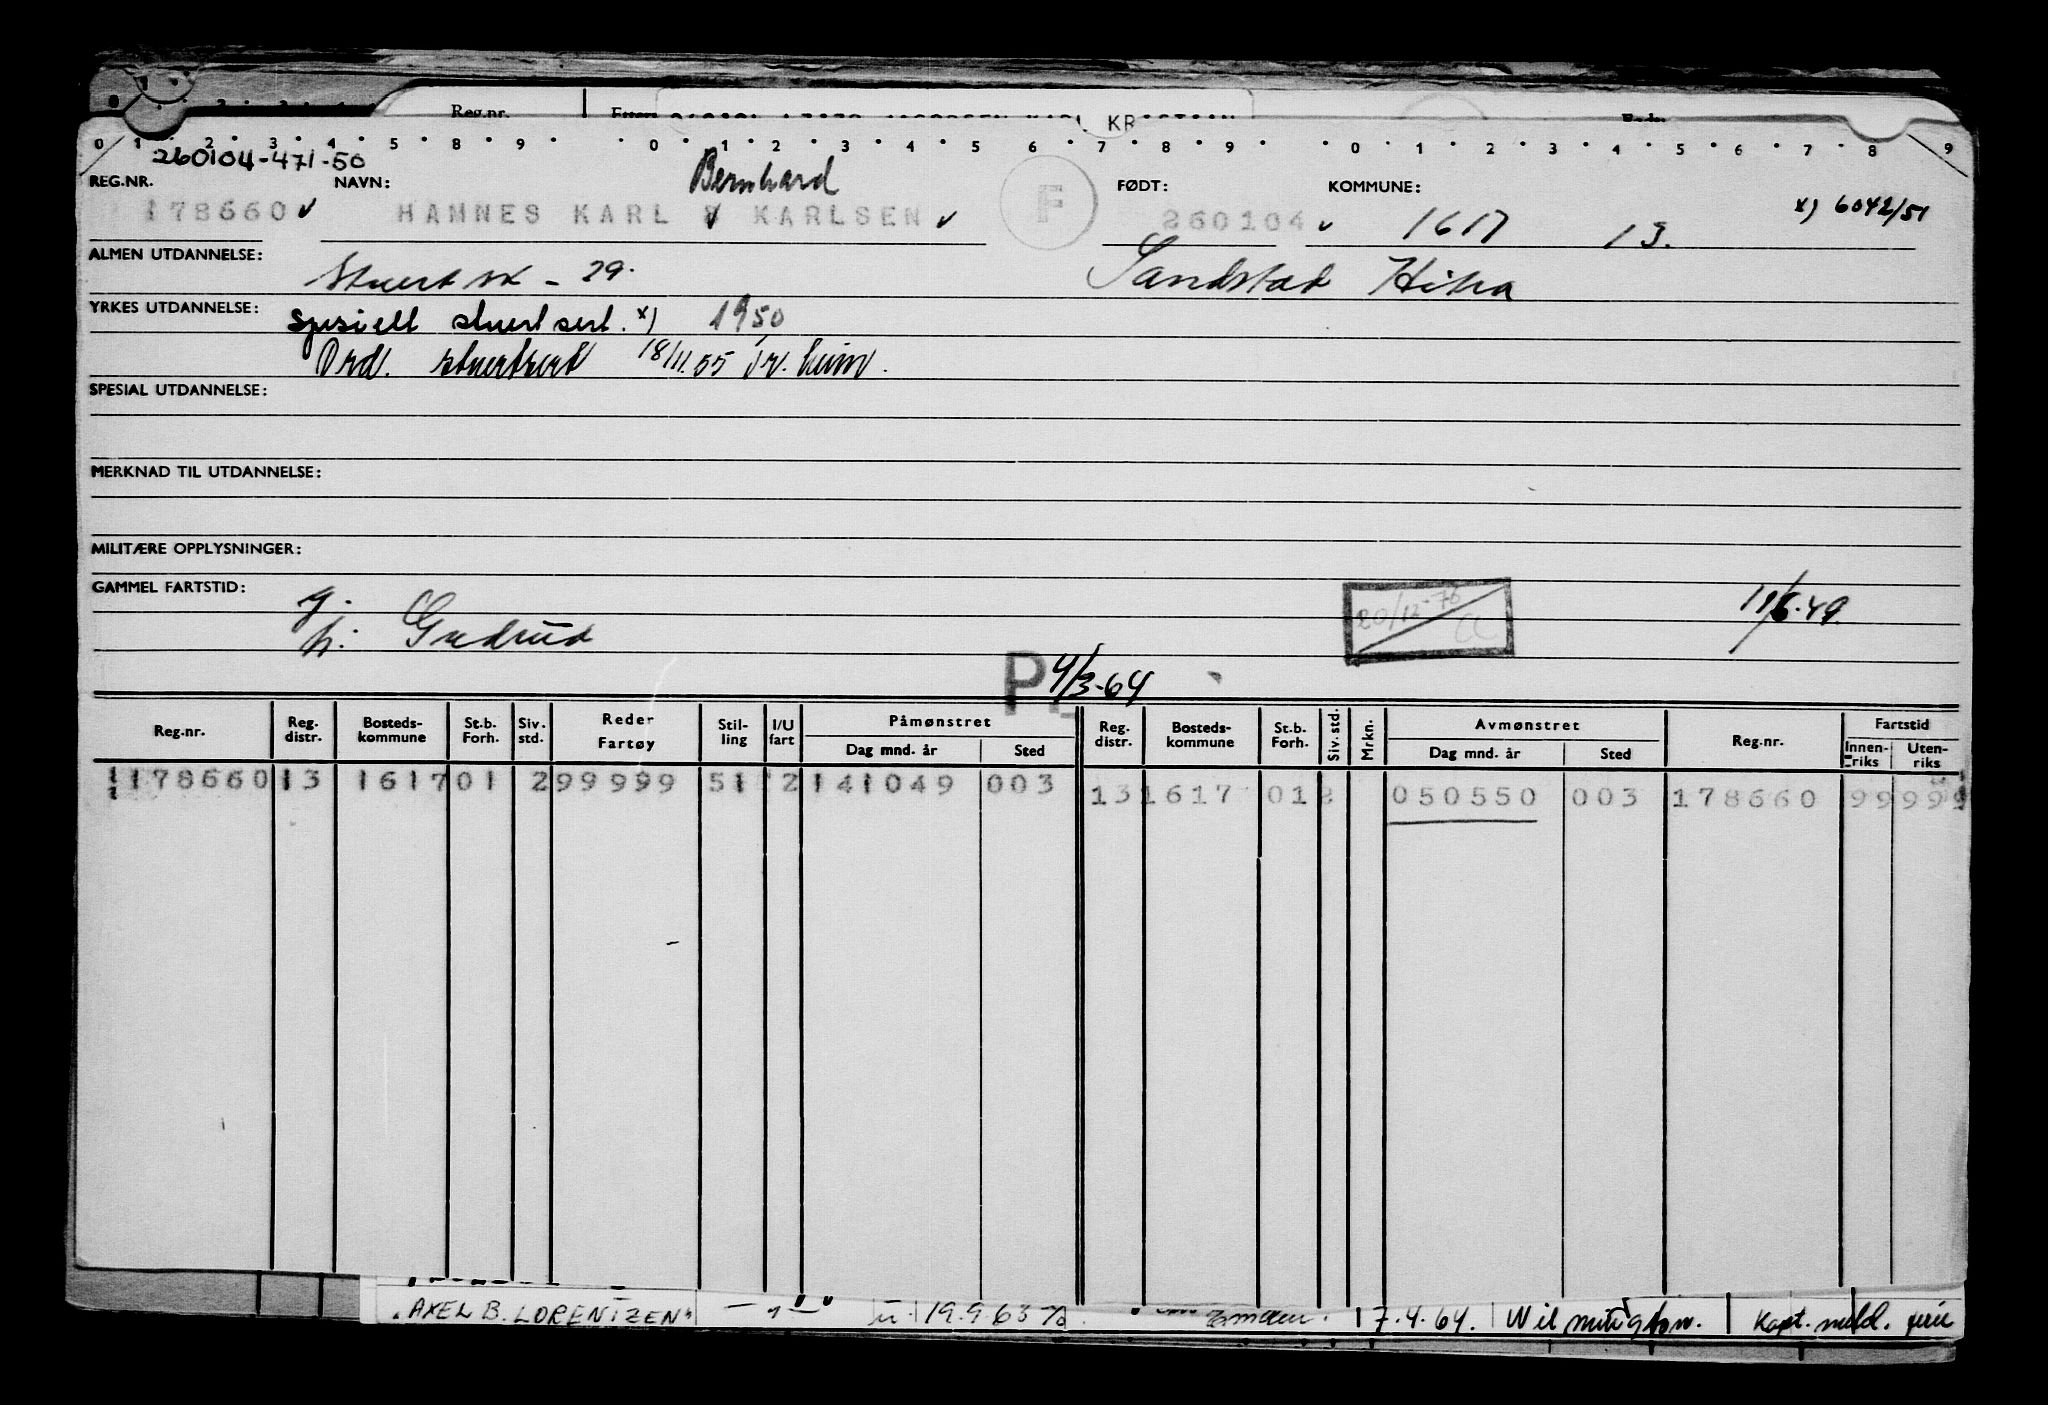 Reg.nr.
KR
0 1 2 3 4 5 8 9 0 1 2 3 4 5 6 7 8 9 0 1 2 3 4 5 6 7 8 9
260104-471-50
REG.NR. NAVN: Bernhard F FØDT: KOMMUNE:
178660 HAMNES KARL KARLSEN 260104 1617 13. x) 6042/51
ALMEN UTDANNELSE: Stuert sk - 29. Sandstad Hitra
YRKES UTDANNELSE: spesiell stuertsert. x) 1950
Ord. stuertsert 18/11.55 Tr.heim.
SPESIAL UTDANNELSE:
MERKNAD TIL UTDANNELSE:
MILITÆRE OPPLYSNINGER:
GAMMEL FARTSTID: g. 20/12-76 CC 11/6.49
h. Gudrud
P 4/3-64
Reg.nr. Reg. distr. Bosteds-kommune St.b. Forh. Siv. std. Reder Fartøy Stil-ling I/U fart Påmønstret Dag mnd. år Sted Reg. distr. Bosteds-kommune St.b. Forh. Siv. std. Mrkn. Avmønstret Dag mnd. år Sted Reg.nr. Fartstid Innen-riks Uten-riks
178660 13 1617 01 2 99999 51 2 141049 003 13 1617 01 2 050550 003 178660 99 999
"AXEL B. LORENTZEN" - " - u. 19.9.63 Emden. 17.4.64. Wilmington. Kapt. meld. ferie